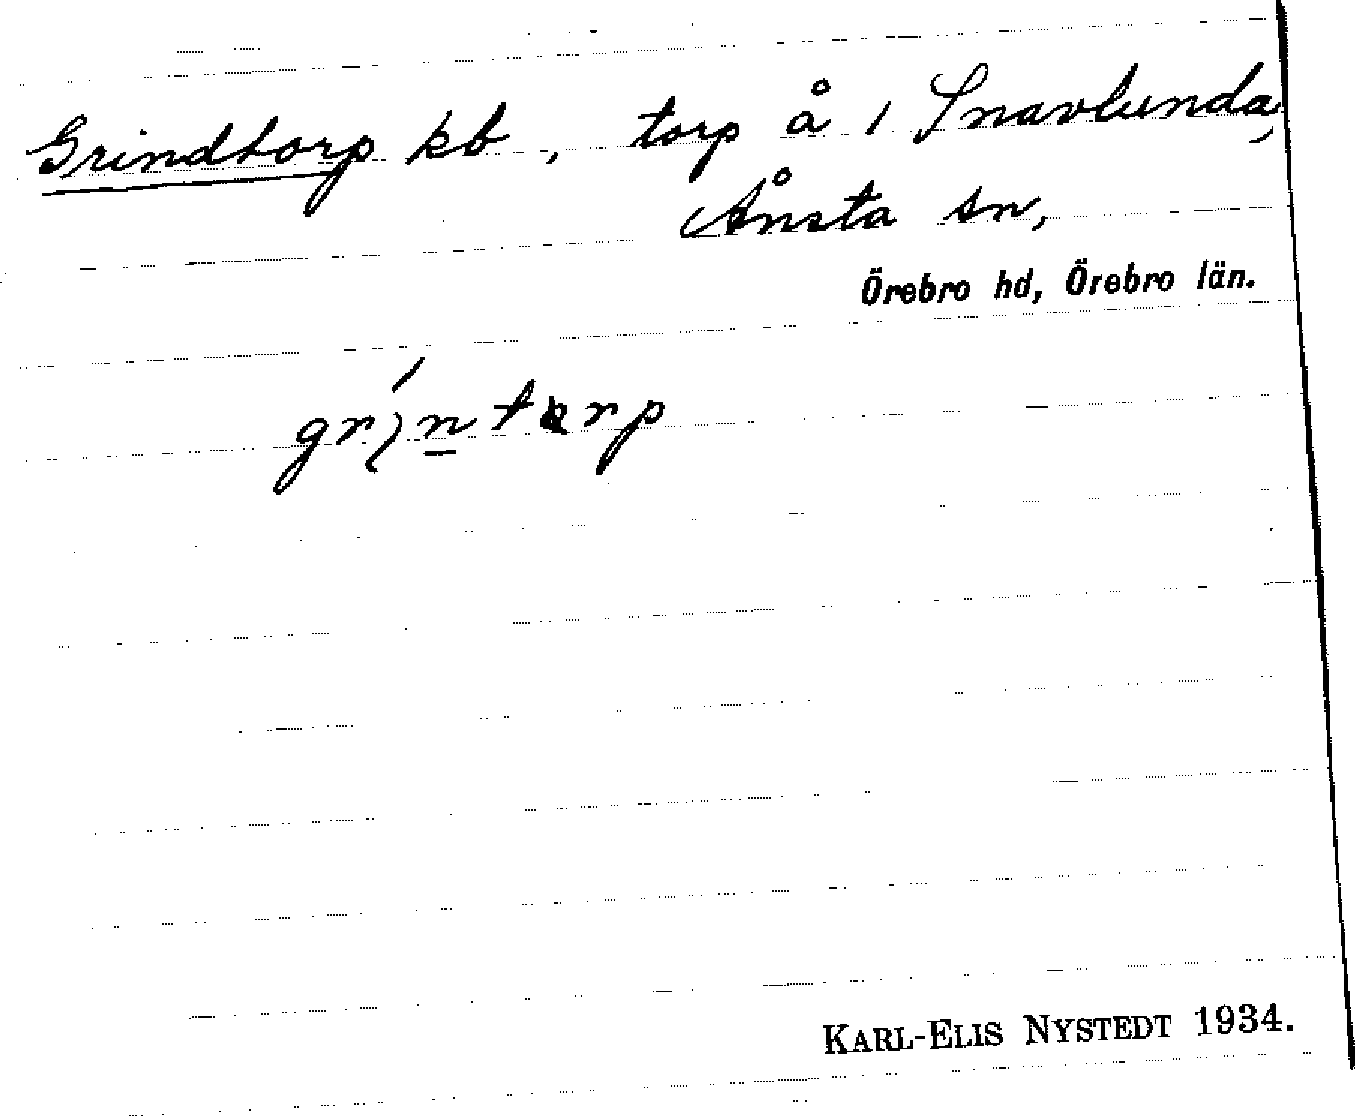 Grindtorp kb, torp å 1 Snavlunda,
Ånsta sn,
Örebro hd, Örebro län.
KARL-ELIS NYSTEDT 1934.